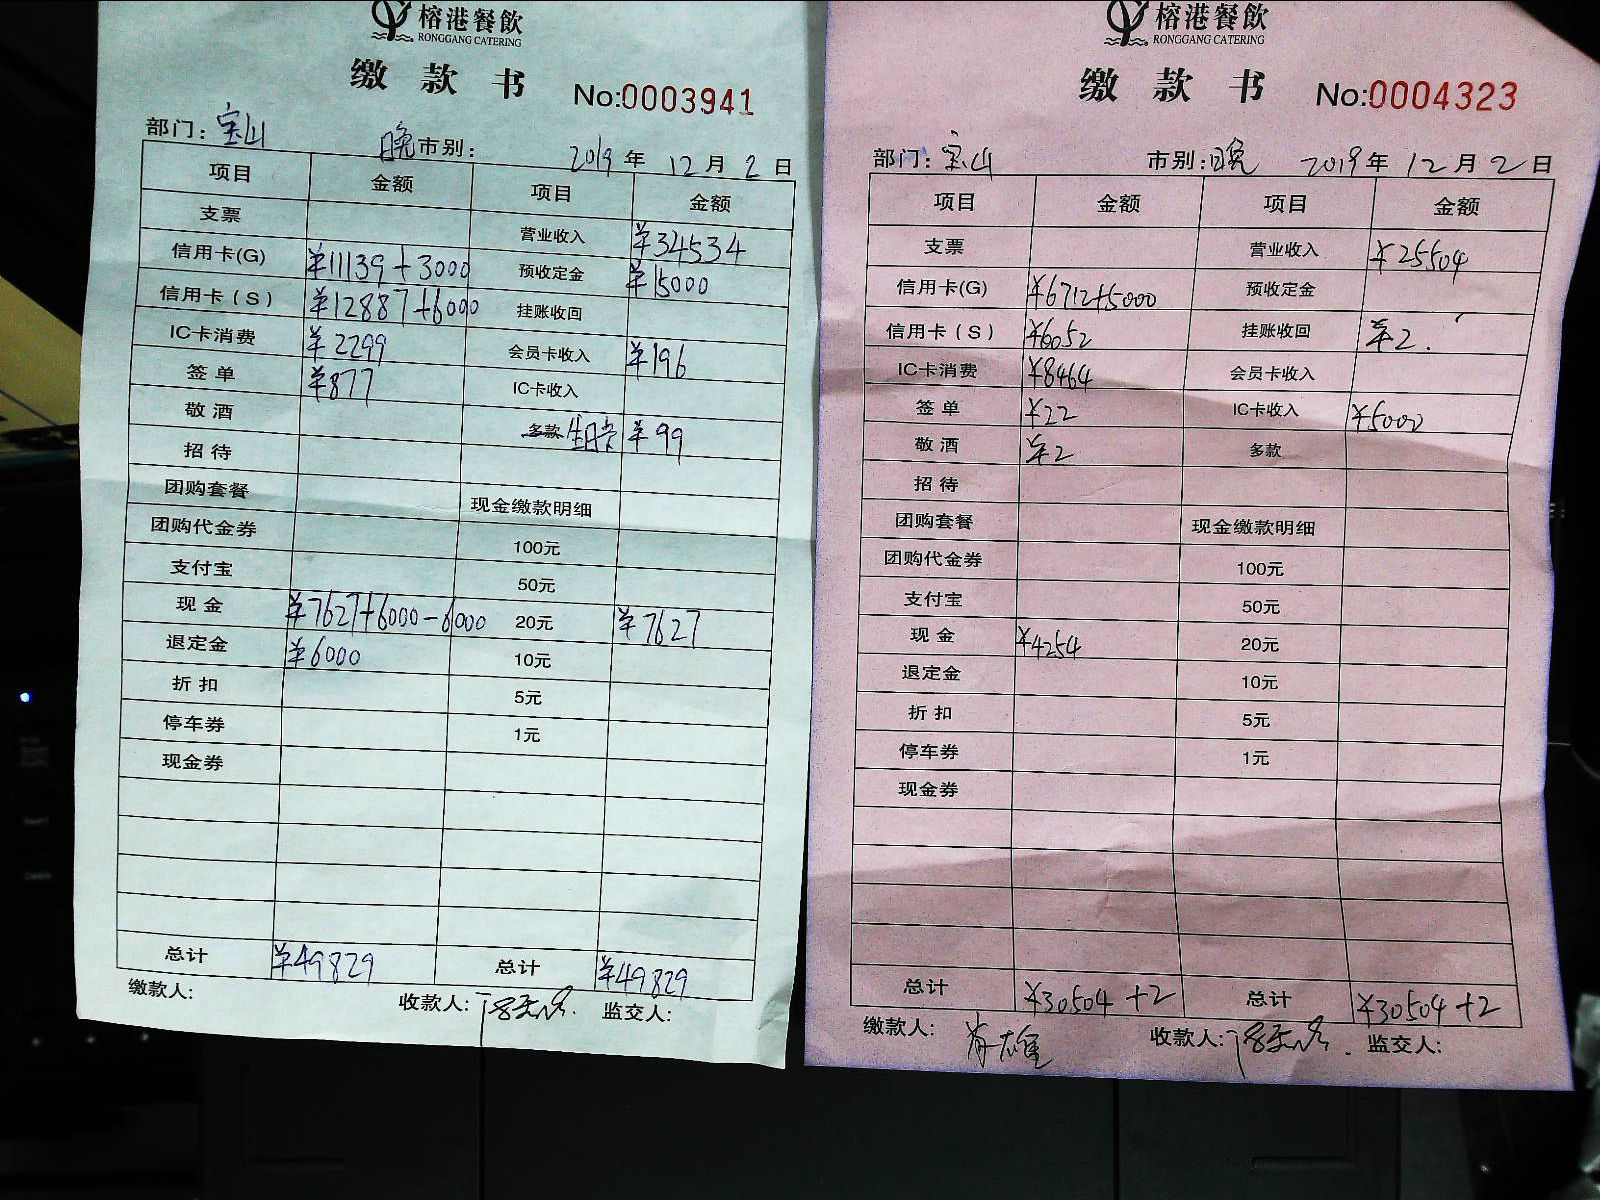 榕港餐飲
RONGGANG CATERING
缴款书
No:0003941
部门：宝山 晚市别： 2019年12月2日
项目 金额 项目 金额
支票 营业收入 ¥34534
信用卡(G) ¥11139+3000 预收定金 ¥15000
信用卡（S） ¥12887+6000 挂账收回
IC卡消费 ¥2299 会员卡收入 ¥196
签单 ¥877 IC卡收入
敬酒 多款 ¥99
招待
团购套餐 现金缴款明细
团购代金券 100元
支付宝 50元
现金 ¥7627+6000-6000 20元 ¥7627
退定金 ¥6000 10元
折扣 5元
停车券 1元
现金券
总计 ¥49829 总计 ¥49829
缴款人： 收款人： 监交人：
榕港餐飲
RONGGANG CATERING
缴款书
No:0004323
部门：宝山 市别：晚 2019年12月2日
项目 金额 项目 金额
支票 营业收入 ¥25504
信用卡(G) ¥6712+5000 预收定金
信用卡（S） ¥6052 挂账收回 ¥2.
IC卡消费 ¥8464 会员卡收入
签单 ¥22 IC卡收入 ¥5000
敬酒 ¥2 多款
招待
团购套餐 现金缴款明细
团购代金券 100元
支付宝 50元
现金 ¥4254 20元
退定金 10元
折扣 5元
停车券 1元
现金券
总计 ¥30504+2 总计 ¥30504+2
缴款人： 收款人： 监交人：